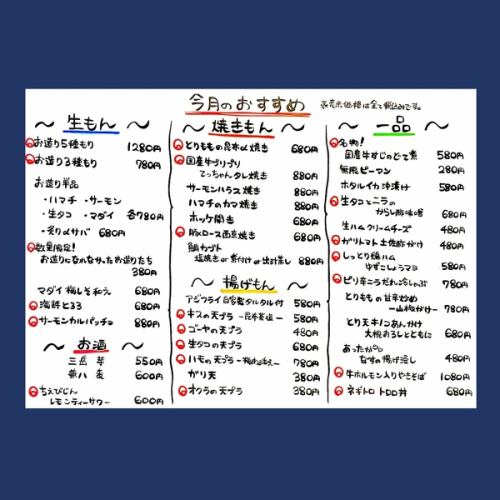 今月のおすすめ
※表示価格は全て税込みです。
〜 生もん 〜
お造り5種もり 1280円
お造り3種もり 780円
お造り単品
・ハマチ ・サーモン
・生タコ ・マダイ 各780円
・炙りメサバ 680円
数量限定!
お造りになれなかったお造りたち
380円
マダイ梅しそ和え 680円
海鮮とろろ 680円
サーモンカルパッチョ 880円
〜 お酒 〜
三岳 芋 550円
兼八 麦 600円
ちえびじん
レモンティーサワー 600円
〜 焼きもん 〜
とりももの昆布〆焼き 680円
国産牛プリプリ
てっちゃんタレ焼き 880円
サーモンハラス焼き 780円
ハマチのカマ焼き 780円
ホッケ開き 680円
豚ロース西京焼き 680円
鯛カブト
塩焼き or 煮付け or 出汁蒸し 880円
〜 揚げもん 〜
アジフライ自家製タルタル付 580円
キスの天プラ 〜昆布茶塩〜 580円
ゴーヤの天プラ 480円
生タコの天プラ 680円
ハモの天プラ 〜梅肉添え〜 780円
ガリ天 380円
オクラの天プラ 380円
〜 一品 〜
名物!
国産牛すじのどて煮 580円
無限ピーマン 280円
ホタルイカ沖漬け 580円
生タコとニラの
からし酢味噌 680円
生ハムクリームチーズ 480円
ガリトマト土佐酢がけ 480円
しっとり鶏ハム
ゆずこしょうマヨ 580円
ピリ辛ニラだれ冷しゃぶ 780円
とりももの甘辛炒め
〜山椒がけ〜 780円
とり天キノコあんかけ
大根おろしとともに 680円
あったか
なすの揚げ浸し 480円
牛ホルモン入りやきそば 1080円
ネギトロ トロロ丼 680円